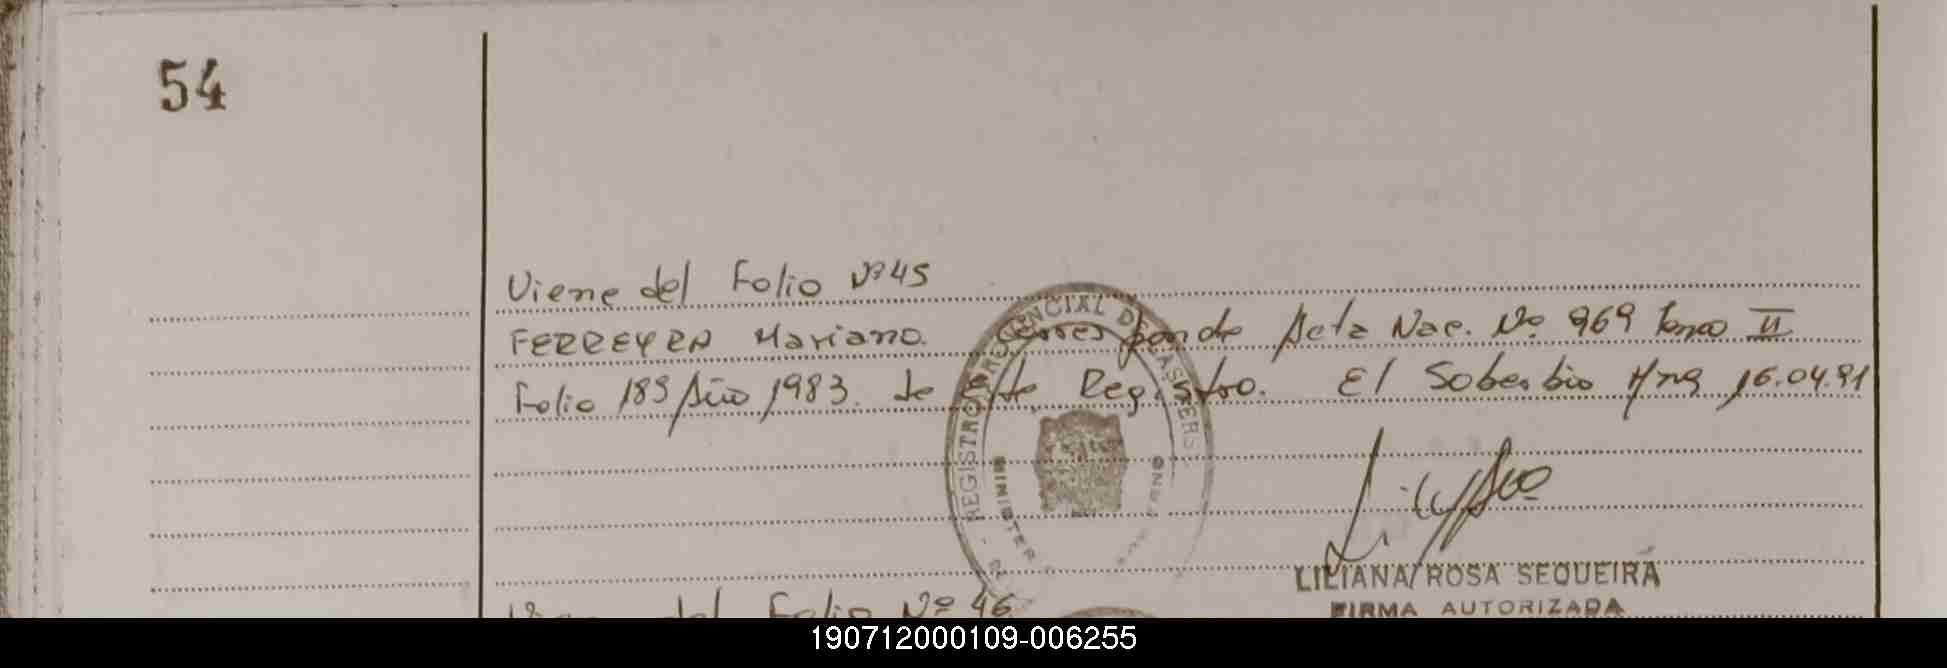 54
Viene del Folio Nº 45
FERREYRA Mariano. Corresponde Acta Nac. Nº 969 Tomo II
Folio 183 Año 1983. de este Registro. El Soberbio Mnes 16.04.91
REGISTRO PROVINCIAL DE LAS PERS
MINISTER
LILIANA ROSA SEQUEIRA
FIRMA AUTORIZADA
del Folio Nº 46
190712000109-006255